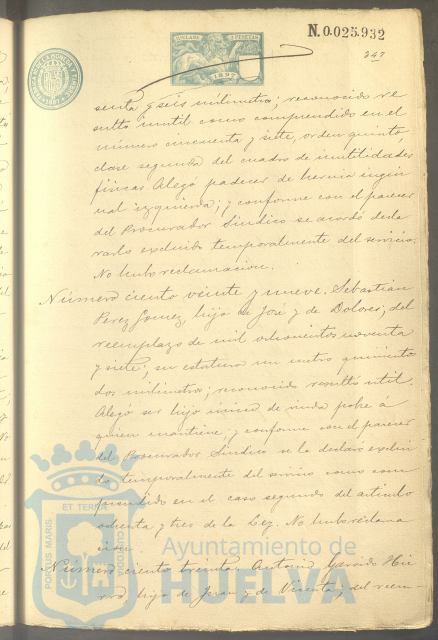 N.0.025.932
247
1897
senta y seis milimetros; reconocido re
sultó inutil como comprendido en el
número cincuenta y siete, orden quinto,
clase segunda del cuadro de inutilidades
fisicas. Alegó padecer de hernia ingui
nal izquierda; y conforme con el parecer
del Procurador Sindico se acordó decla
rarlo excluido temporalmente del servicio.
No hubo reclamacion.
Número ciento veinte y nueve. Sebastian
Perez Gomez, hijo de José y de Dolores, del
reemplazo de mil ochocientos noventa
y siete; su estatura un metro quinientos
dos milimetros; reconocido resultó util.
Alegó ser hijo único de viuda pobre á
quien mantiene y conforme con el parecer
del Procurador Sindico se le declaró exclui
do temporalmente del servicio como com
prendido en el caso segundo del articulo
ochenta y tres de la Ley. No hubo reclama
cion.
Número ciento treinta. Antonio Garrido
hijo de Juan y de Vicenta, del reem
PORTUS MARIS ET TERRAE CUSTODIA
Ayuntamiento de
HUELVA